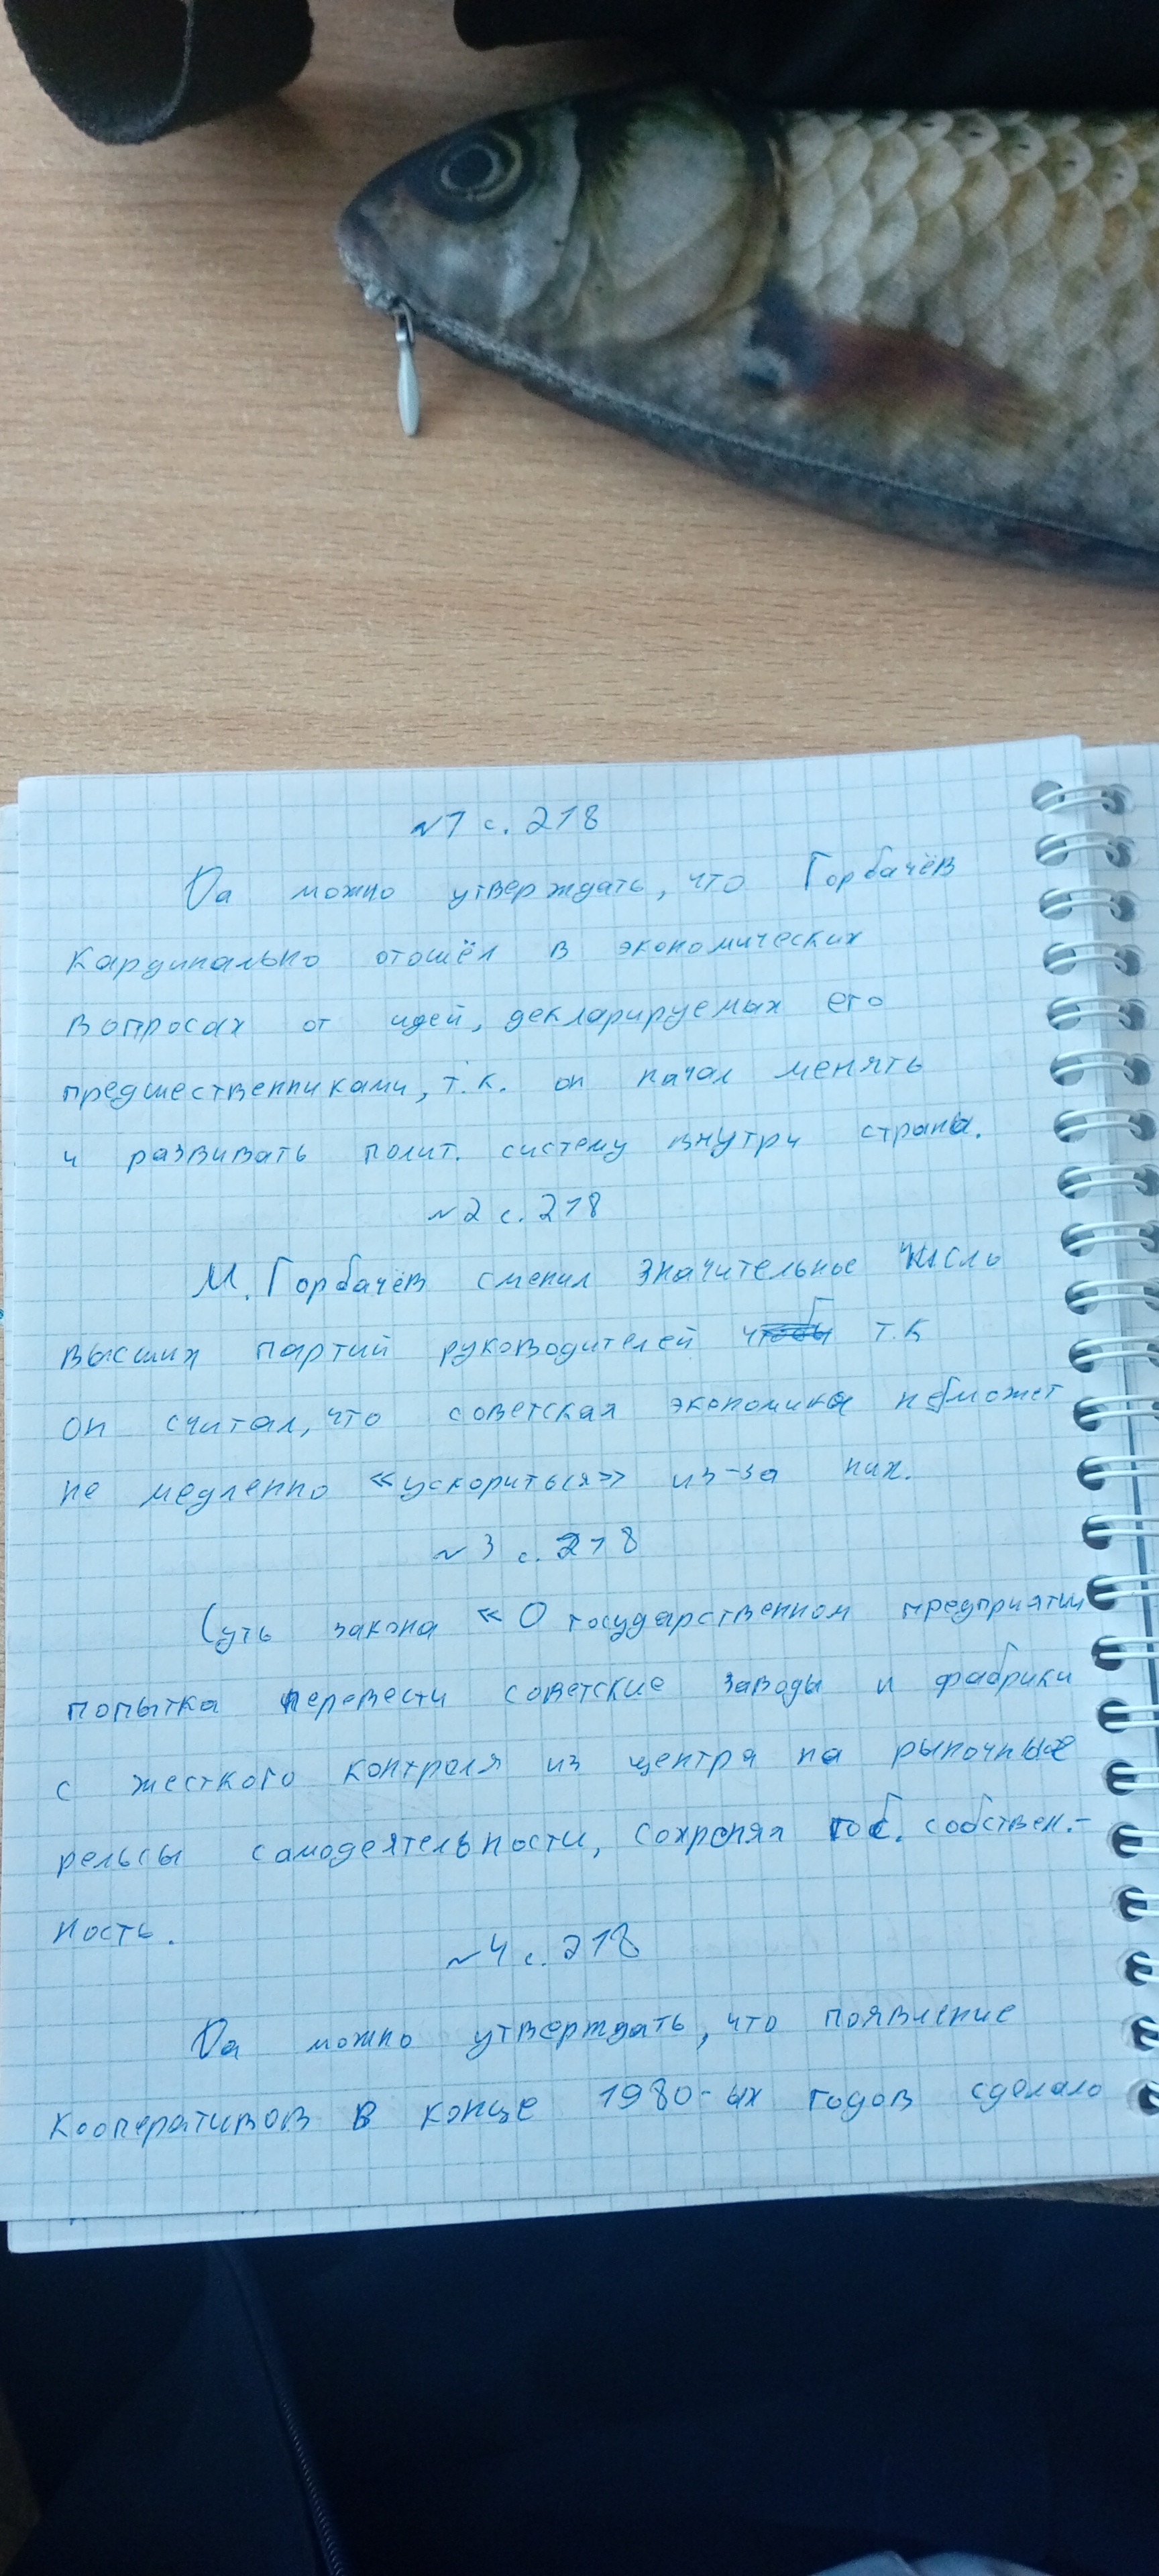 №1 с. 218
Да можно утверждать, что Горбачёв
кардинально отошёл в экономических
вопросах от идей, декларируемых его
предшественниками, т.к. он начал менять
и развивать полит. систему внутри страны.
№2 с. 218
М. Горбачёв сменил значительное число
высших партий руководителей чтобы т.к
он считал, что советская экономика неможет
не медленно «ускориться» из-за них.
№3 с. 218
Суть закона «О государственном предприятии
попытка перевести советские заводы и фабрики
с жесткого контроля из центра на рыночные
рельсы самодеятельности, сохраняя гос. собствен.-
ность.
№4 с. 218
Да можно утверждать, что появление
кооперативов в конце 1980-ых годов сделало